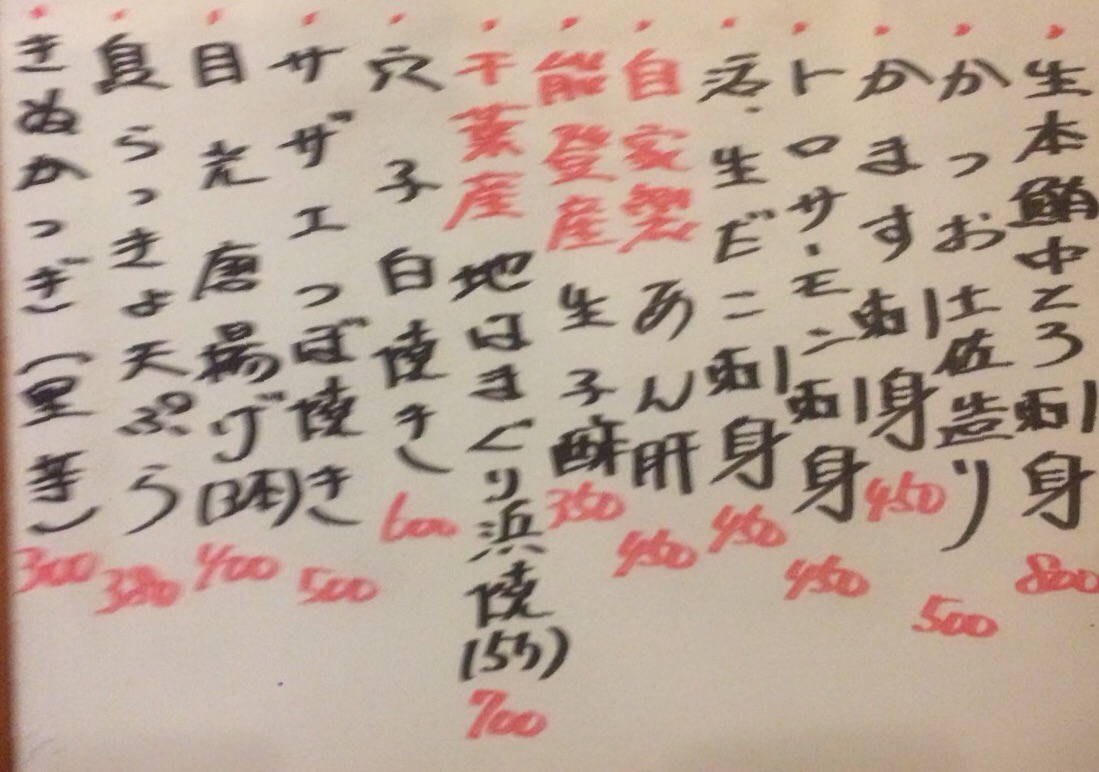 生本鮪中とろ刺身 800
かつお土佐造り 500
かます刺身 450
トロサーモン刺身 450
活・生だこ刺身 450
自家製 あん肝 450
能登産 生子酢 350
千葉産 地はまぐり浜焼(5ヶ) 700
穴子白焼き 600
サザエつぼ焼き 500
目光唐揚げ(3本) 400
島らっきょ天ぷら 380
きぬかつぎ(里芋) 300